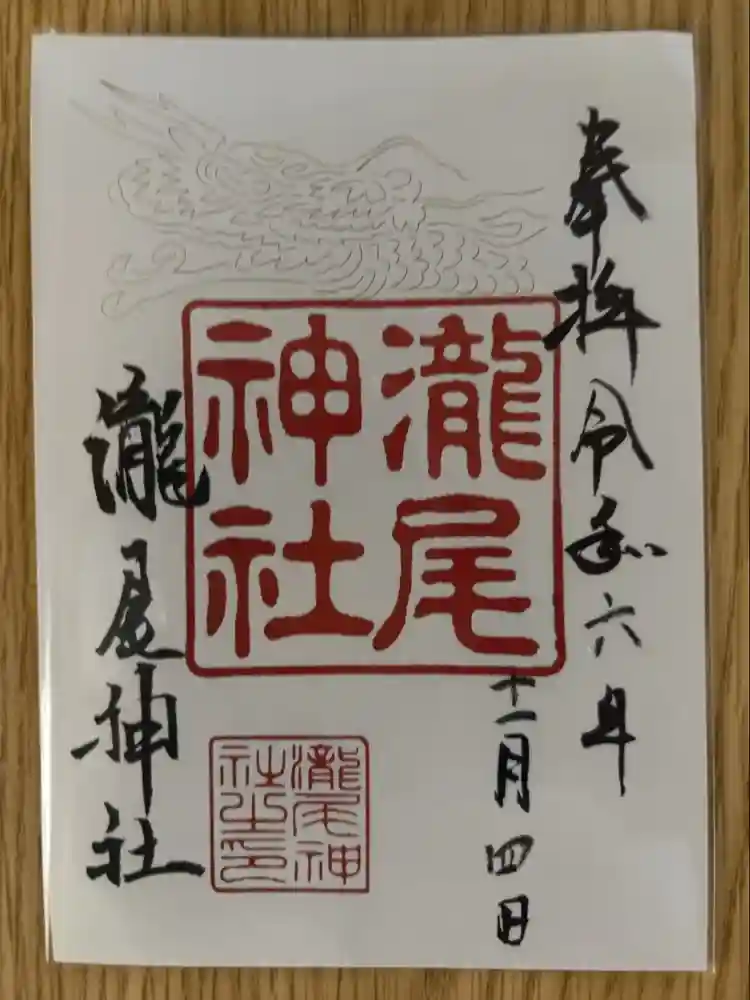 奉拝 令和六年
十一月四日
瀧尾神社
瀧尾神社
瀧尾神社之印